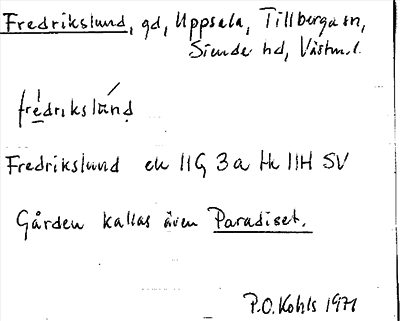 Fredrikslund, gd, Uppsala, Tillberga sn,
Siende hd, Västm.l.
frédrikslún̂d
Fredrikslund ek 11G 3a Hk 11H SV
Gården kallas även Paradiset.
P.O.Kohls 1971